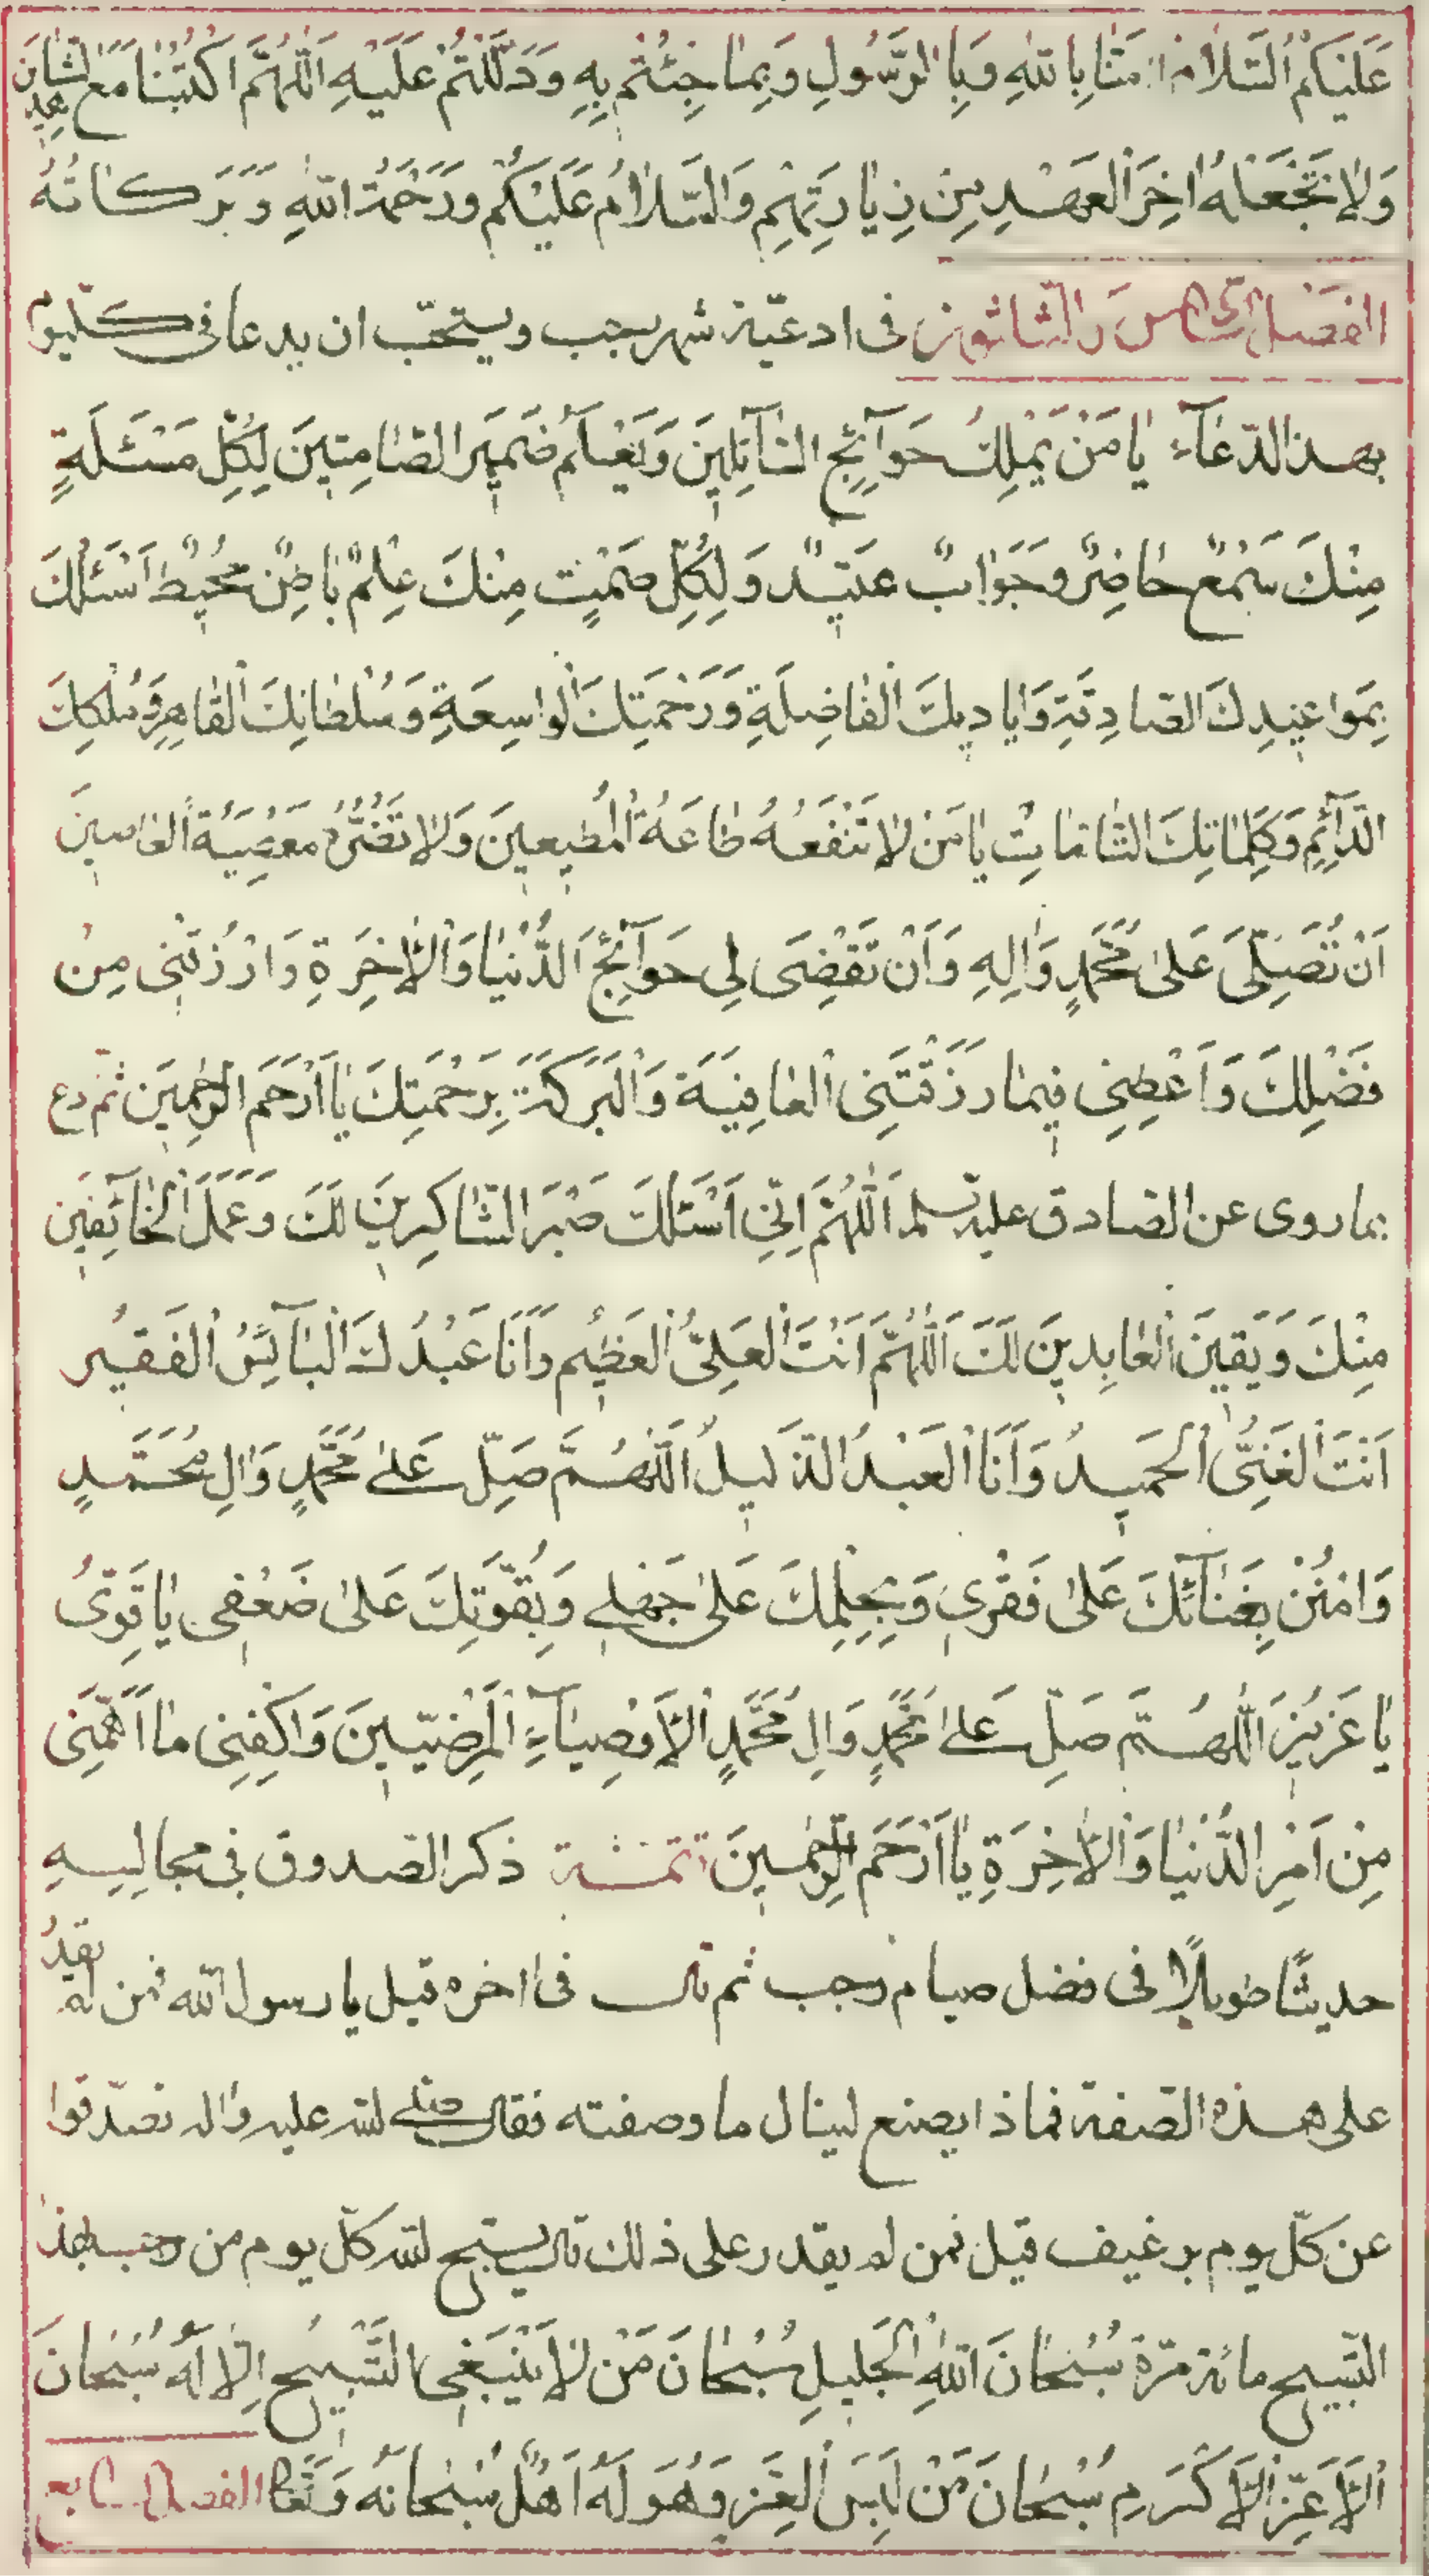 عَلَيْكُمُ السَّلَامُ اٰمَنَّا بِاللّٰهِ وَبِالرَّسُولِ وَبِمَا جِئْتُمْ بِهِ وَدَلَلْتُمْ عَلَيْهِ اَللّٰهُمَّ اكْتُبْنَا مَعَ الشَّاهِدِينَ
وَلَا تَجْعَلْهُ اٰخِرَ الْعَهْدِ مِنْ زِيَارَتِهِمْ وَالسَّلَامُ عَلَيْكُمْ وَرَحْمَةُ اللّٰهِ وَبَرَكَاتُهُ
الفصل الخامس والثلاثون فى ادعيّة شهر رجب ويستحبّ ان يدعا فى كلّ يوم
بهذا الدّعآء يَا مَنْ يَمْلِكُ حَوَآئِجَ السَّآئِلِينَ وَيَعْلَمُ ضَمِيرَ الصَّامِتِينَ لِكُلِّ مَسْئَلَةٍ
مِنْكَ سَمْعٌ حَاضِرٌ وَجَوَابٌ عَتِيدٌ وَلِكُلِّ صَمْتٍ مِنْكَ عِلْمٌ بَاطِنٌ مُحِيطٌ اَسْئَلُكَ
بِمَوَاعِيدِكَ الصَّادِقَةِ وَاَيَادِيكَ الْفَاضِلَةِ وَرَحْمَتِكَ الْوَاسِعَةِ وَسُلْطَانِكَ الْقَاهِرِ وَمُلْكِكَ
الدَّآئِمِ وَكَلِمَاتِكَ التَّامَّاتِ يَا مَنْ لَا تَنْفَعُهُ طَاعَةُ الْمُطِيعِينَ وَلَا تَضُرُّهُ مَعْصِيَةُ الْعَاصِينَ
اَنْ تُصَلِّىَ عَلَىٰ مُحَمَّدٍ وَاٰلِهِ وَاَنْ تَقْضِىَ لِى حَوَآئِجَ الدُّنْيَا وَالْاٰخِرَةِ وَارْزُقْنِى مِنْ
فَضْلِكَ وَاَعْطِنِى فِيمَا رَزَقْتَنِى الْعَافِيَةَ وَالْبَرَكَةَ بِرَحْمَتِكَ يَا اَرْحَمَ الرَّاحِمِينَ ثمّ ادع
بما روى عن الصادق عليه السلم اَللّٰهُمَّ اِنِّى اَسْئَلُكَ صَبْرَ الشَّاكِرِينَ لَكَ وَعَمَلَ الْخَائِفِينَ
مِنْكَ وَيَقِينَ الْعَابِدِينَ لَكَ اَللّٰهُمَّ اَنْتَ الْعَلِىُّ الْعَظِيمُ وَاَنَا عَبْدُكَ الْبَآئِسُ الْفَقِيرُ
اَنْتَ الْغَنِىُّ الْحَمِيدُ وَاَنَا الْعَبْدُ الذَّلِيلُ اَللّٰهُمَّ صَلِّ عَلىٰ مُحَمَّدٍ وَاٰلِ مُحَمَّدٍ
وَامْنُنْ بِغَنَآئِكَ عَلىٰ فَقْرِى وَبِحِلْمِكَ عَلىٰ جَهْلِى وَبِقُوَّتِكَ عَلىٰ ضَعْفِى يَا قَوِىُّ
يَا عَزِيزُ اَللّٰهُمَّ صَلِّ عَلىٰ مُحَمَّدٍ وَاٰلِ مُحَمَّدٍ الْاَوْصِيَآءِ الْمَرْضِيِّينَ وَاكْفِنِى مَا اَهَمَّنِى
مِنْ اَمْرِ الدُّنْيَا وَالْاٰخِرَةِ يَا اَرْحَمَ الرَّاحِمِينَ تتمّة ذكر الصّدوق فى مجالسه
حديثًا طويلًا فى فضل صيام رجب ثم قال فى اخره قيل يا رسول اللّه فمن لم يقدر
على هذه الصّفة فماذا يصنع لينال ما وصفته فقال صلى اللّه عليه واله تصدّقوا
عن كلّ يوم برغيف قيل فمن لم يقدر على ذلك قال يسبّح للّه كلّ يوم من رجب بهذا
التّسبيح مائة مرّة سُبْحَانَ اللّٰهِ الْجَلِيلِ سُبْحَانَ مَنْ لَا يَنْبَغِى التَّسْبِيحُ اِلَّا لَهُ سُبْحَانَ
الْاَعَزِّ الْاَكْرَمِ سُبْحَانَ مَنْ لَبِسَ الْعِزَّ وَهُوَ لَهُ اَهْلٌ سُبْحَانَهُ وَتَعَالىٰ الفصل السابع